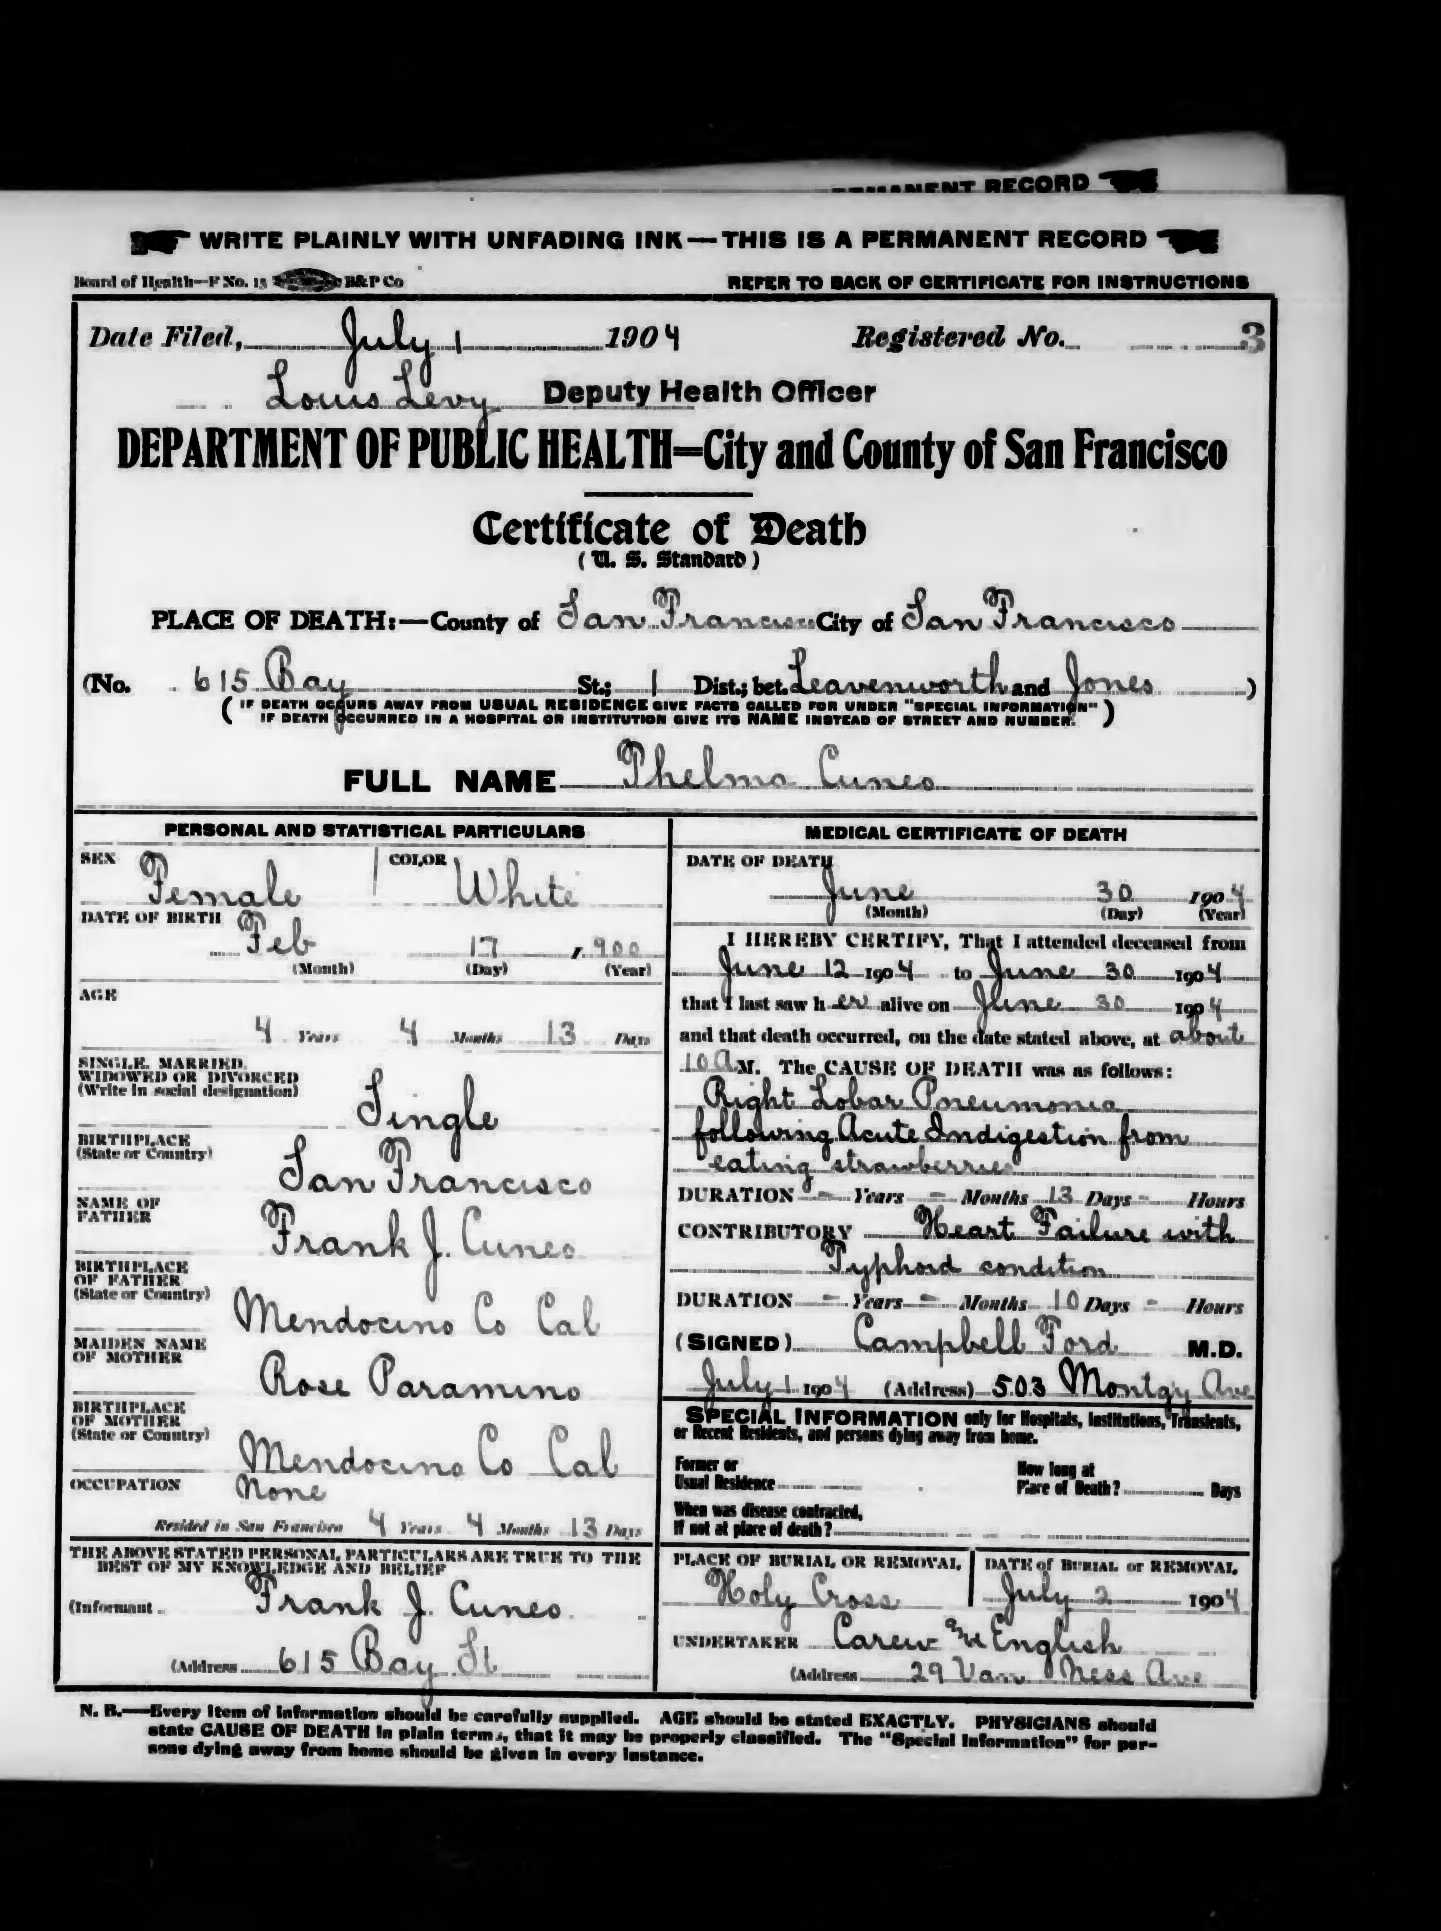 RECORD
WRITE PLAINLY WITH UNFADING INK—THIS IS A PERMANENT RECORD
Board of Health—F No. 15 B&P Co
REFER TO BACK OF CERTIFICATE FOR INSTRUCTIONS
Date Filed, July 1 1904 Registered No. 3
Louis Levy Deputy Health Officer
DEPARTMENT OF PUBLIC HEALTH=City and County of San Francisco
Certificate of Death
(U. S. Standard)
PLACE OF DEATH:—County of San Francisco City of San Francisco
(No. 615 Bay St.; 1 Dist.; bet. Leavenworth and Jones )
( IF DEATH OCCURS AWAY FROM USUAL RESIDENCE GIVE FACTS CALLED FOR UNDER "SPECIAL INFORMATION"
IF DEATH OCCURRED IN A HOSPITAL OR INSTITUTION GIVE ITS NAME INSTEAD OF STREET AND NUMBER. )
FULL NAME Thelma Cuneo
PERSONAL AND STATISTICAL PARTICULARS
SEX Female COLOR White
DATE OF BIRTH
Feb 17 , 900
(Month) (Day) (Year)
AGE
4 Years 4 Months 13 Days
SINGLE, MARRIED,
WIDOWED OR DIVORCED
(Write in social designation)
Single
BIRTHPLACE
(State or Country)
San Francisco
NAME OF
FATHER
Frank J. Cuneo
BIRTHPLACE
OF FATHER
(State or Country)
Mendocino Co Cal
MAIDEN NAME
OF MOTHER
Rose Paramino
BIRTHPLACE
OF MOTHER
(State or Country)
Mendocino Co Cal
OCCUPATION None
Resided in San Francisco 4 Years 4 Months 13 Days
THE ABOVE STATED PERSONAL PARTICULARS ARE TRUE TO THE
BEST OF MY KNOWLEDGE AND BELIEF
(Informant Frank J. Cuneo
(Address 615 Bay St
MEDICAL CERTIFICATE OF DEATH
DATE OF DEATH
June 30 1904
(Month) (Day) (Year)
I HEREBY CERTIFY, That I attended deceased from
June 12 1904 to June 30 1904
that I last saw h er alive on June 30 1904
and that death occurred, on the date stated above, at about
10 A M. The CAUSE OF DEATH was as follows:
Right Lobar Pneumonia
following Acute Indigestion from
eating strawberries
DURATION - Years - Months 13 Days - Hours
CONTRIBUTORY Heart Failure with
Typhoid condition
DURATION - Years - Months 10 Days - Hours
(SIGNED) Campbell Ford M.D.
July 1 1904 (Address) 503 Montgy Ave
SPECIAL INFORMATION only for Hospitals, Institutions, Transients,
or Recent Residents, and persons dying away from home.
Former or
Usual Residence
How long at
Place of Death? Days
When was disease contracted,
If not at place of death?
PLACE OF BURIAL OR REMOVAL
Holy Cross
DATE of BURIAL or REMOVAL
July 2 1904
UNDERTAKER Carew and English
(Address 29 Van Ness Ave
N. B.—Every item of information should be carefully supplied. AGE should be stated EXACTLY. PHYSICIANS should
state CAUSE OF DEATH in plain terms, that it may be properly classified. The "Special Information" for per-
sons dying away from home should be given in every instance.